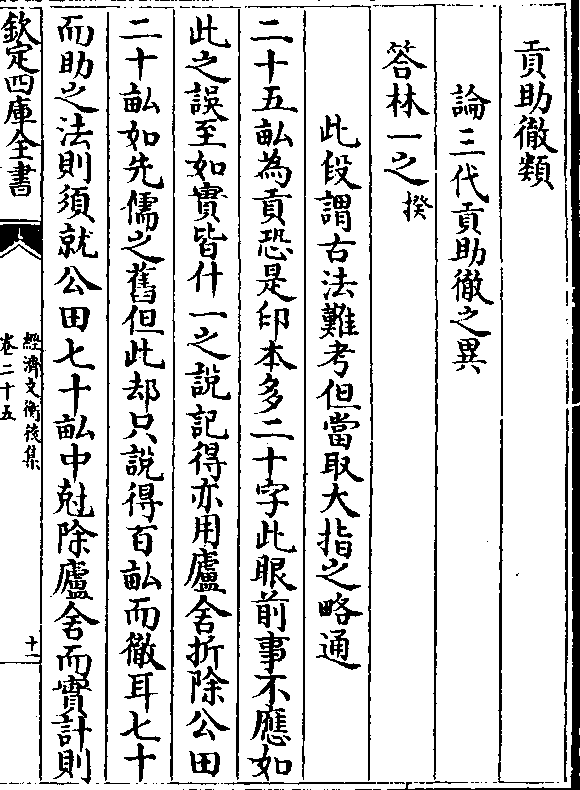 貢助徹類
論三代貢助徹之異
答林一之揆
此段謂古法難考但當取大指之略通
二十五畝為貢恐是印本多二十字此眼前事不應如
此之誤至如實皆什一之說記得亦用廬舍折除公田
二十畝如先儒之舊但此却只說得百畝而徹耳七十
而助之法則須就公田七十畝中尅除廬舍而實計則
欽定四庫全書
經濟文衡後集
卷二十五
十一